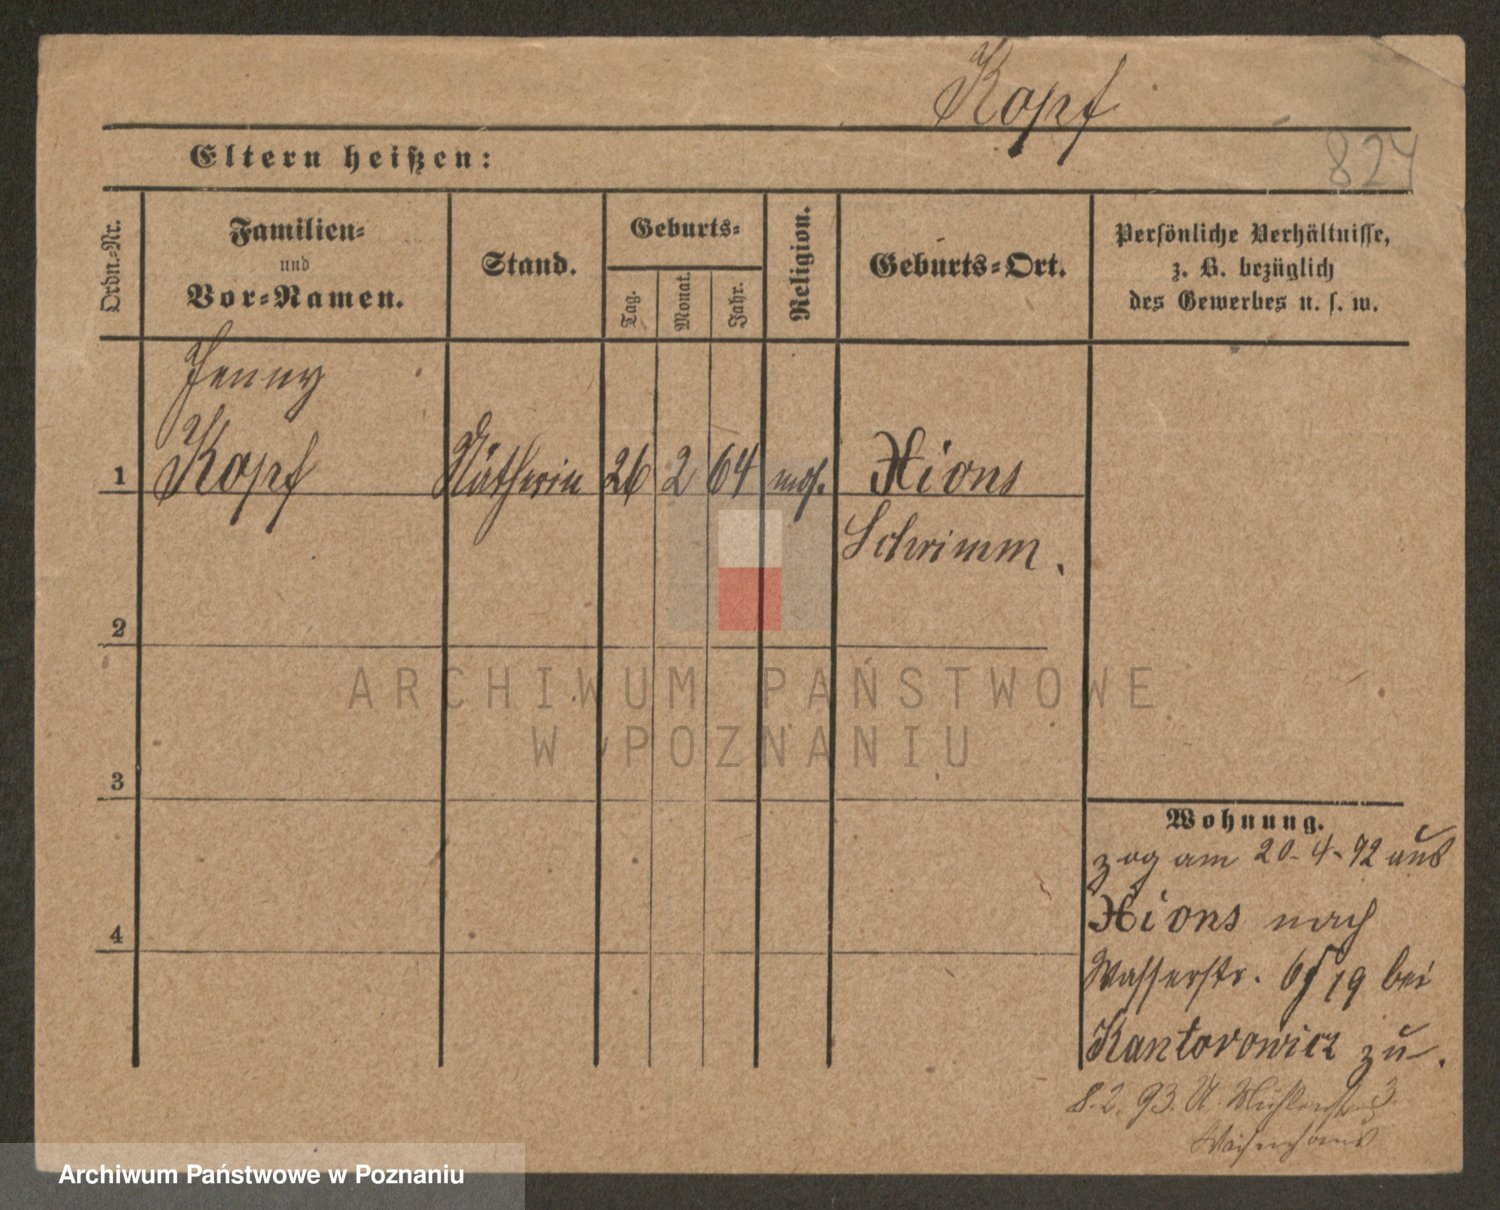 Kopf
827
Eltern heißen:
Ordn.-Nr.
Familien-
und
Vor-Namen.
Stand.
Geburts-
Tag.
Monat.
Jahr.
Religion.
Geburts-Ort.
Persönliche Verhältnisse,
z. B. bezüglich
des Gewerbes u. s. w.
Jenny
1 Kopf Nätherin 26 2 64 mos. Xions
Schrimm.
2
3
4
Wohnung.
zog am 20-4-92 aus
Xions nach
Wasserstr. 19 bei
Kantorowicz zu.
8.2.93. U. Mühlenstr. 3
Waisenhaus
ARCHIWUM PAŃSTWOWE
W POZNANIU
Archiwum Państwowe w Poznaniu